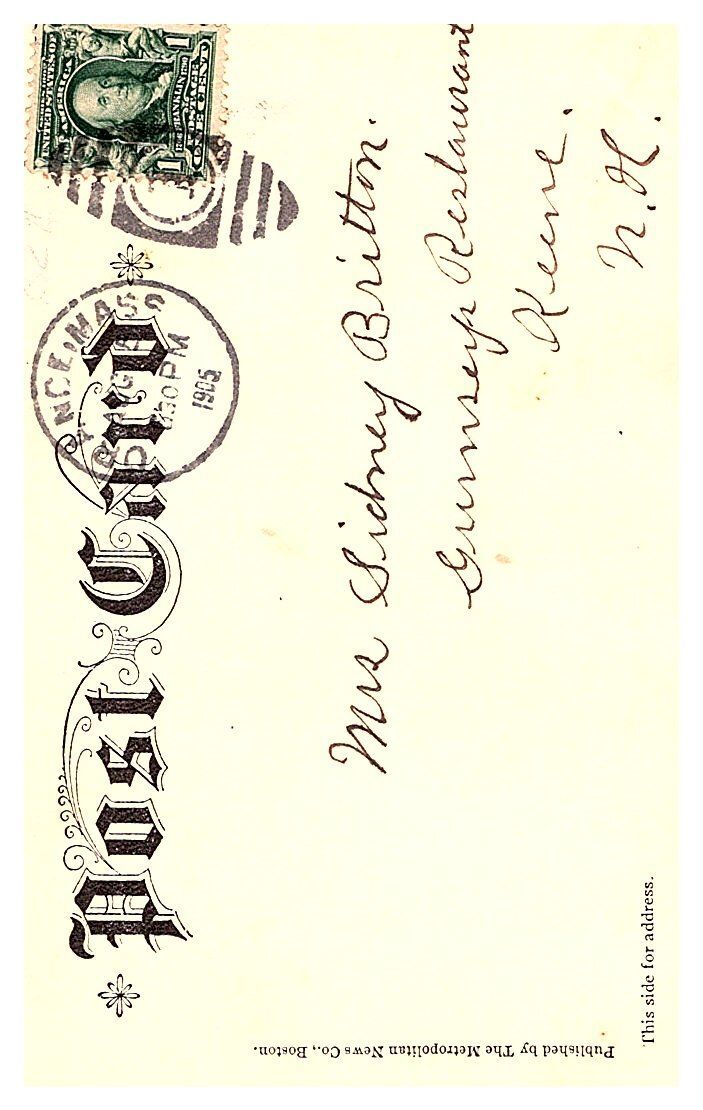 Post Card
UNITED STATES OF AMERICA
FRANKLIN
POSTAGE
1 ONE CENT 1
NCE, MASS
AUG
30 PM
1905
Mrs Sidney Britton.
Gurnseys Restaurant
Keene.
N. H.
This side for address.
Published by The Metropolitan News Co., Boston.